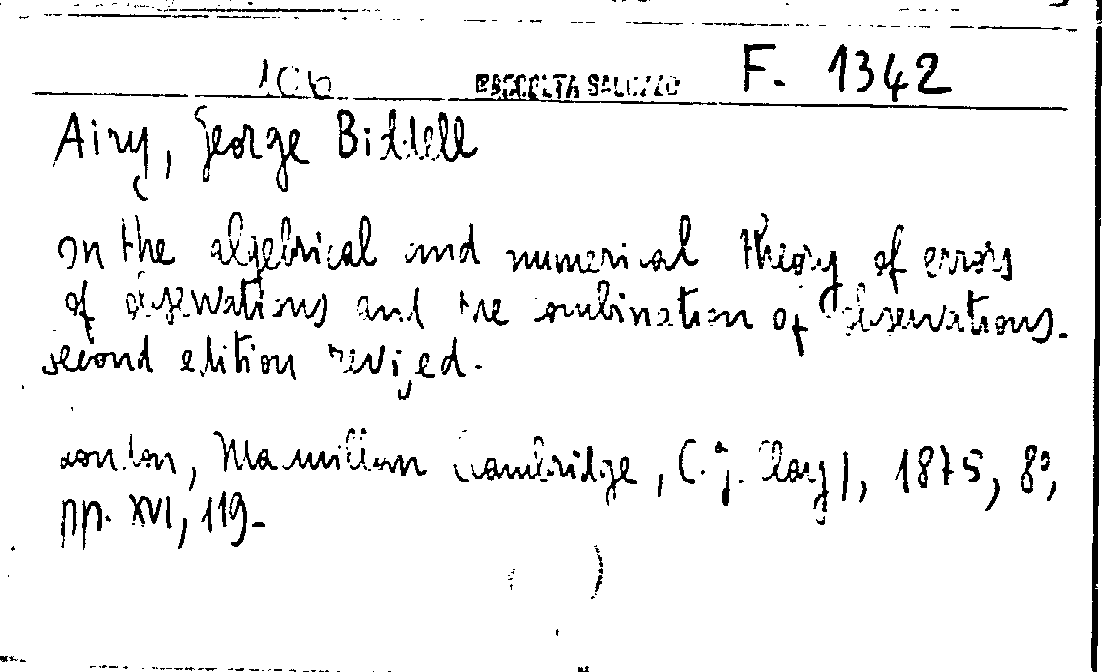 106 RACCOLTA SALUZZO F. 1342
Airy, George Biddell
on the algebrical and numerical theory of errors
of observations and the combination of observations.
second edition revised.
London, Macmillan (Cambridge, C. J. Clay), 1875, 8°,
pp. XVI, 119.